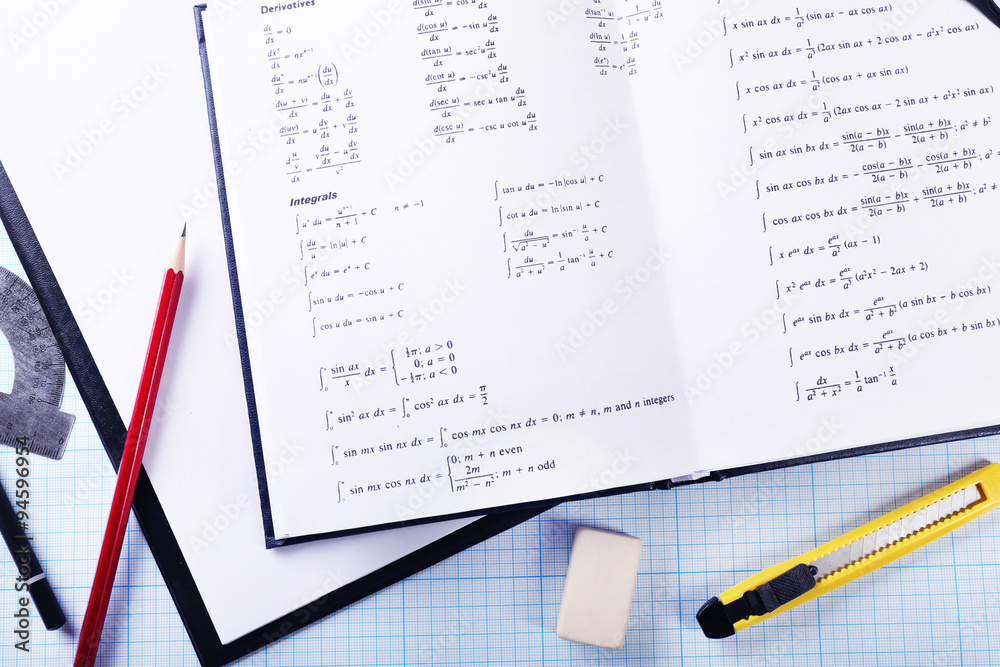 Derivatives
dc/dx = 0
dxⁿ/dx = nxⁿ⁻¹
duⁿ/dx = nuⁿ⁻¹(du/dx)
d(u + v)/dx = du/dx + dv/dx
d(uv)/dx = u dv/dx + v du/dx
d u/v /dx = (v du/dx − u dv/dx)/v²
d(cos u)/dx = −sin u du/dx
d(tan u)/dx = sec²u du/dx
d(cot u)/dx = −csc²u du/dx
d(sec u)/dx = sec u tan u du/dx
d(csc u)/dx = −csc u cot u du/dx
d(ln u)/dx = 1/u du/dx
d(eᵘ)/dx = eᵘ du/dx
Integrals
∫ uⁿ du = uⁿ⁺¹/(n + 1) + C n ≠ −1
∫ du/u = ln |u| + C
∫ eᵘ du = eᵘ + C
∫ sin u du = −cos u + C
∫ cos u du = sin u + C
∫ tan u du = −ln|cos u| + C
∫ cot u du = ln|sin u| + C
∫ du/√(a² − u²) = sin⁻¹ u/a + C
∫ du/(a² + u²) = 1/a tan⁻¹ u/a + C
sin ax/x dx = { ½π; a > 0
0; a = 0
−½π; a < 0
sin² ax dx = ∫ cos² ax dx = π/2
sin mx sin nx dx = ∫ cos mx cos nx dx = 0; m ≠ n, m and n integers
sin mx cos nx dx = { 0; m + n even
2m/(m² − n²); m + n odd
∫ x sin ax dx = 1/a² (sin ax − ax cos ax)
∫ x² sin ax dx = 1/a³ (2ax sin ax + 2 cos ax − a²x² cos ax)
∫ x cos ax dx = 1/a² (cos ax + ax sin ax)
∫ x² cos ax dx = 1/a³ (2ax cos ax − 2 sin ax + a²x² sin ax)
∫ sin ax sin bx dx = sin(a − b)x/2(a − b) − sin(a + b)x/2(a + b); a² ≠ b²
∫ sin ax cos bx dx = −cos(a − b)x/2(a − b) − cos(a + b)x/2(a + b); a² ≠
∫ cos ax cos bx dx = sin(a − b)x/2(a − b) + sin(a + b)x/2(a + b); a² ≠
∫ x eᵃˣ dx = eᵃˣ/a² (ax − 1)
∫ x² eᵃˣ dx = eᵃˣ/a³ (a²x² − 2ax + 2)
∫ eᵃˣ sin bx dx = eᵃˣ/(a² + b²) (a sin bx − b cos bx)
∫ eᵃˣ cos bx dx = eᵃˣ/(a² + b²) (a cos bx + b sin bx)
∫ dx/(a² + x²) = 1/a tan⁻¹ x/a
Adobe Stock | #94596954